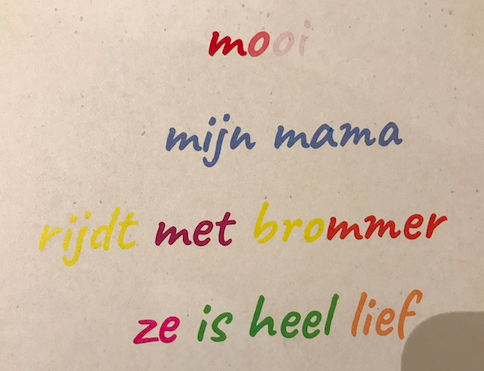 mooi
mijn mama
rijdt met brommer
ze is heel lief